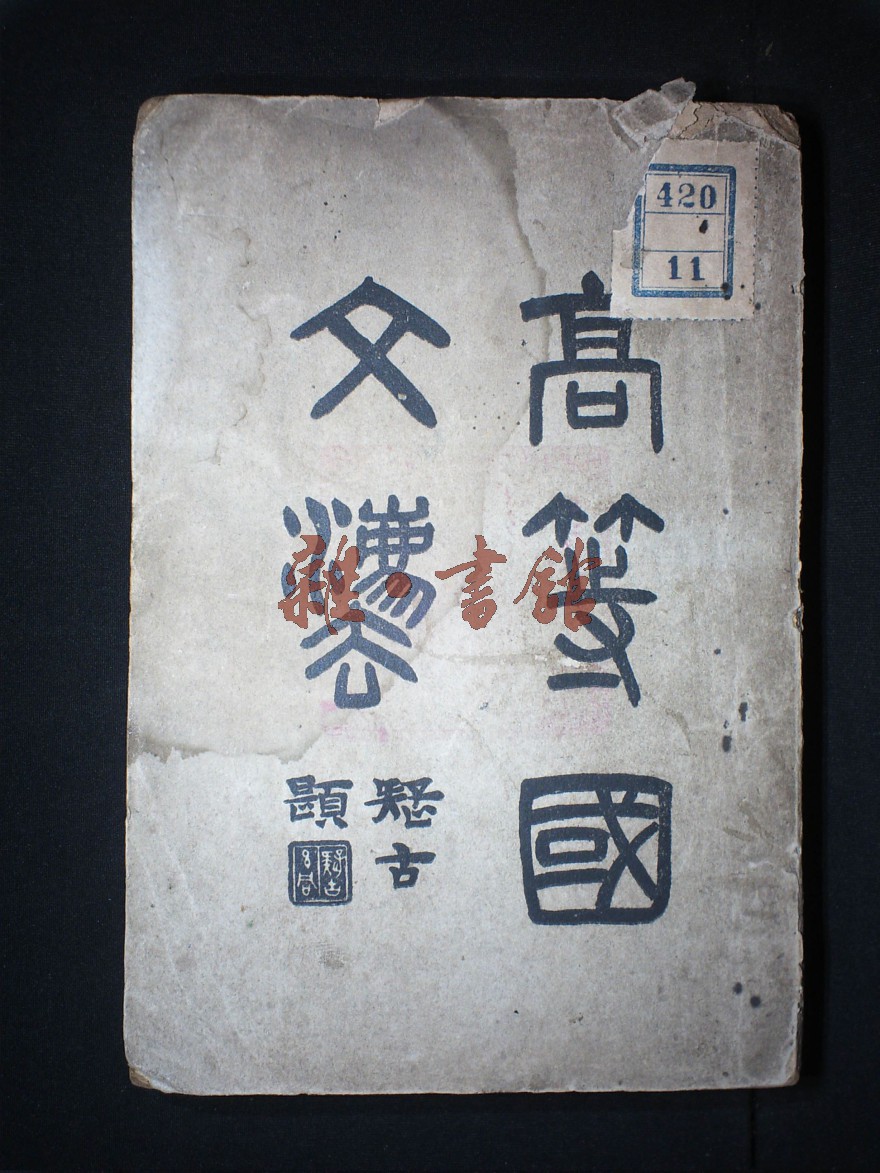 420
11
高等國
文灋
疑古
題
疑古
玄同
雜·書館